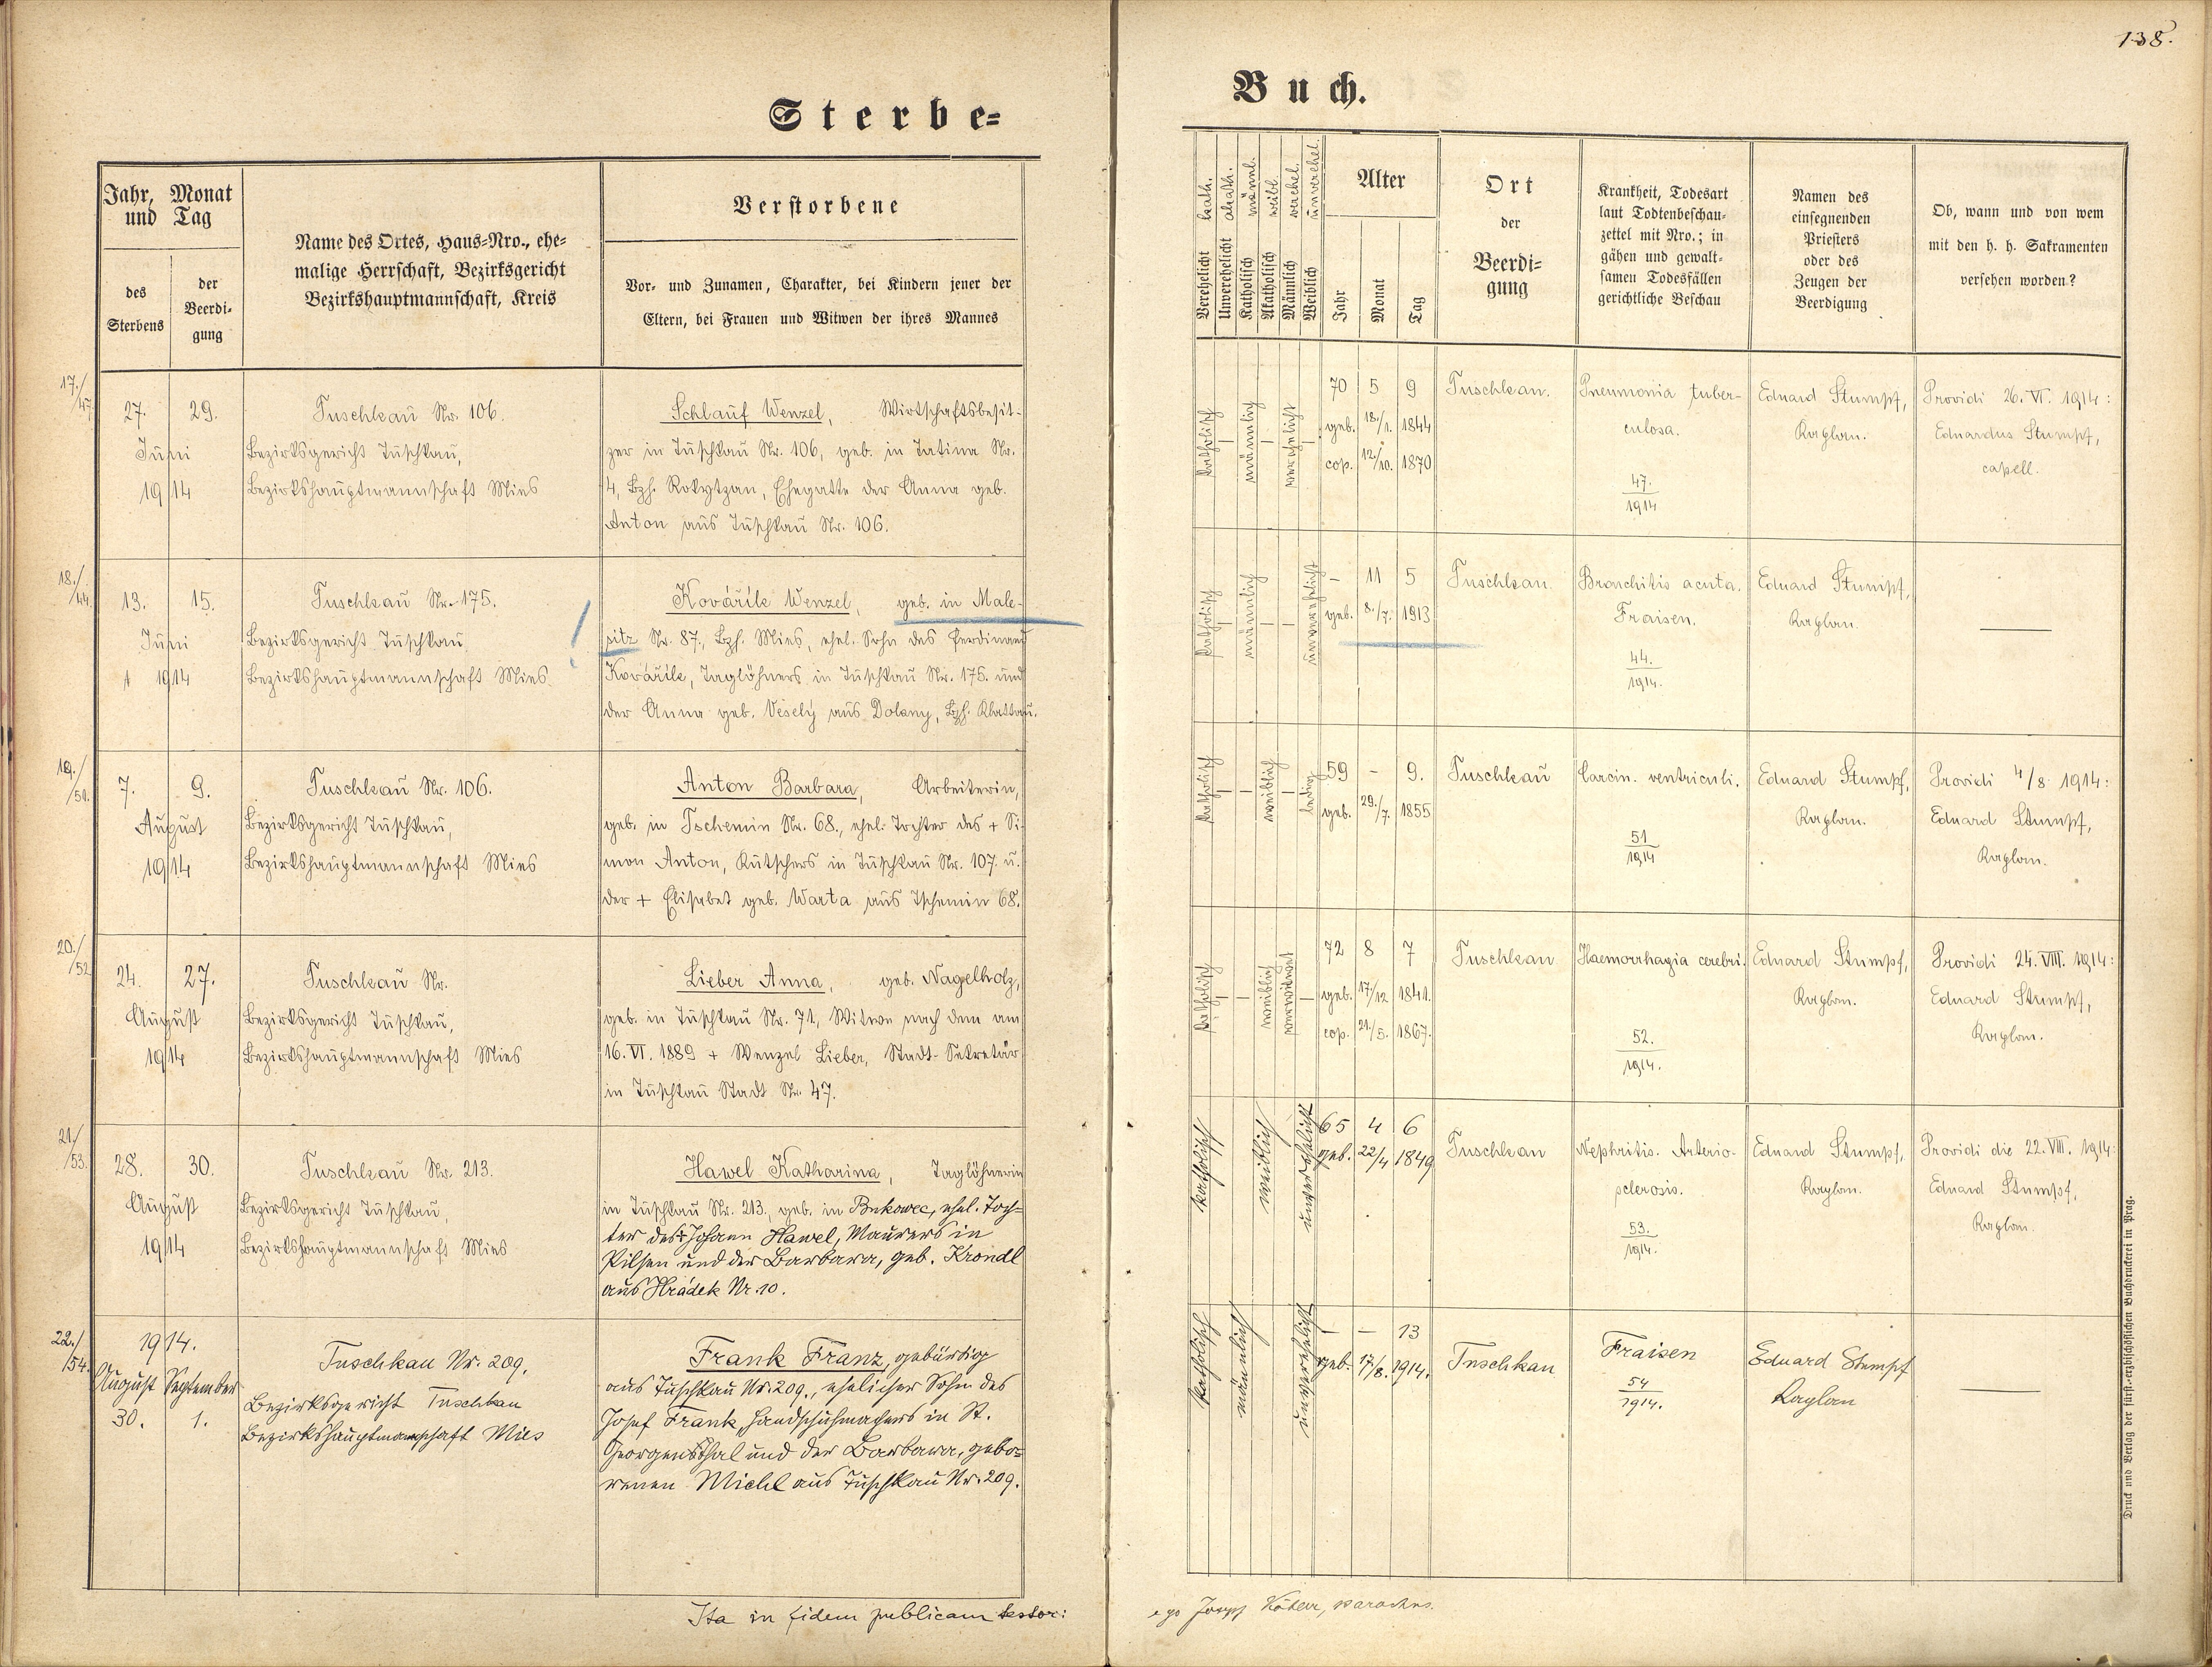 138.
Sterbe-
Buch.
Jahr, Monat
und Tag
des
Sterbens
der
Beerdi-
gung
Name des Ortes, Haus-Nro., ehe-
malige Herrschaft, Bezirksgericht
Bezirkshauptmannschaft, Kreis
Verstorbene
Vor- und Zunamen, Charakter, bei Kindern jener der
Eltern, bei Frauen und Witwen der ihres Mannes
kath.
akath.
männl.
weibl.
verehel.
unverehel.
Verehelicht
Unverehelicht
Katholisch
Akatholisch
Männlich
Weiblich
Alter
Jahr
Monat
Tag
Ort
der
Beerdi-
gung
Krankheit, Todesart
laut Todtenbeschau-
zettel mit Nro.; in
gähen und gewalt-
samen Todesfällen
gerichtliche Beschau
Namen des
einsegnenden
Priesters
oder des
Zeugen der
Beerdigung
Ob, wann und von wem
mit den h. h. Sakramenten
versehen worden?
17./
47.
27. 29.
Juni
1914
Tuschkau Nr. 106.
Bezirksgericht Tuschkau,
Bezirkshauptmannschaft Mies
Schlauf Wenzel, Wirtschaftsbesit-
zer in Tuschkau Nr. 106, geb. in Tatina Nr.
4, Bzh. Rokytzan, Ehegatte der Anna geb.
Anton aus Tuschkau Nr. 106.
katholisch – männlich – verehelicht –
70 5 9
geb. 18./1. 1844
cop. 12/10. 1870
Tuschkau.
Pneumonia tuber-
culosa.
47.
1914
Eduard Stumpf,
Kaplan.
Providi 26. VI. 1914:
Eduardus Stumpf,
capell.
18./
44.
13. 15.
Juni
1914
Tuschkau Nr. 175.
Bezirksgericht Tuschkau,
Bezirkshauptmannschaft Mies.
Kovářík Wenzel, geb. in Male-
sitz Nr. 87., Bzh. Mies, ehel. Sohn des Ferdinand
Kovářík, Taglöhners in Tuschkau Nr. 175. und
der Anna geb. Veselý aus Dolany, Bzh. Klattau.
katholisch – männlich – – unverehelicht
– 11 5
geb. 8./7. 1913
Tuschkau.
Bronchitis acuta.
Fraisen.
44.
1914.
Eduard Stumpf,
Kaplan.
—
19./
51.
7. 9.
August
1914
Tuschkau Nr. 106.
Bezirksgericht Tuschkau,
Bezirkshauptmannschaft Mies
Anton Barbara, Arbeiterin,
geb. in Tschemin Nr. 68., ehel. Tochter des + Si-
mon Anton, Kutschers in Tuschkau Nr. 107. u.
der + Elisabet geb. Warta aus Tschemin 68.
katholisch – – weiblich – ledig
59 – 9.
geb. 29./7. 1855
Tuschkau
Carcin. ventriculi.
51
1914
Eduard Stumpf,
Kaplan.
Providi 4/8 1914:
Eduard Stumpf,
Kaplan.
20./
52
24. 27.
August
1914
Tuschkau Nr.
Bezirksgericht Tuschkau,
Bezirkshauptmannschaft Mies
Lieber Anna, geb. Nagelholz,
geb. in Tuschkau Nr. 71, Witwe nach dem am
16. VI. 1889 + Wenzel Lieber, Stadt-Sekretär
in Tuschkau Stadt Nr. 47.
katholisch – – weiblich verwitwet –
72 8 7
geb. 17/12 1841.
cop. 21/5. 1867.
Tuschkau
Haemorrhagia cerebri.
52.
1914.
Eduard Stumpf,
Kaplan.
Providi 24. VIII. 1914:
Eduard Stumpf,
Kaplan.
21./
53.
28. 30.
August
1914
Tuschkau Nr. 213.
Bezirksgericht Tuschkau,
Bezirkshauptmannschaft Mies
Hawel Katharina, Taglöhnerin
in Tuschkau Nr. 213., geb. in Bukowec, ehel. Toch-
ter des + Johann Hawel, Maurers in
Pilsen und der Barbara, geb. Krondl
aus Hrádek Nr. 10.
katholisch weiblich unverehelicht
65 4 6
geb. 22/4 1849
Tuschkau
Nephritis. Arterio-
sclerosis.
53.
1914.
Eduard Stumpf,
Kaplan.
Providi die 22. VIII. 1914:
Eduard Stumpf,
Kaplan.
22./
54.
1914.
August September
30. 1.
Tuschkau Nr. 209.
Bezirksgericht Tuschkau
Bezirkshauptmannschaft Mies
Frank Franz, gebürtig
aus Tuschkau Nr. 209., ehelicher Sohn des
Josef Frank, Handschuhmachers in St.
Georgensthal und der Barbara, gebo-
renen Michl aus Tuschkau Nr. 209.
katholisch männlich unverehelicht
– – 13
geb. 17/8. 1914.
Tuschkau
Fraisen
54
1914.
Eduard Stumpf
Kaplan
—
Ita in fidem publicam testor:
ego Josef Köhler, parochus.
Druck und Verlag der fürst.-erzbischöflichen Buchdruckerei in Prag.